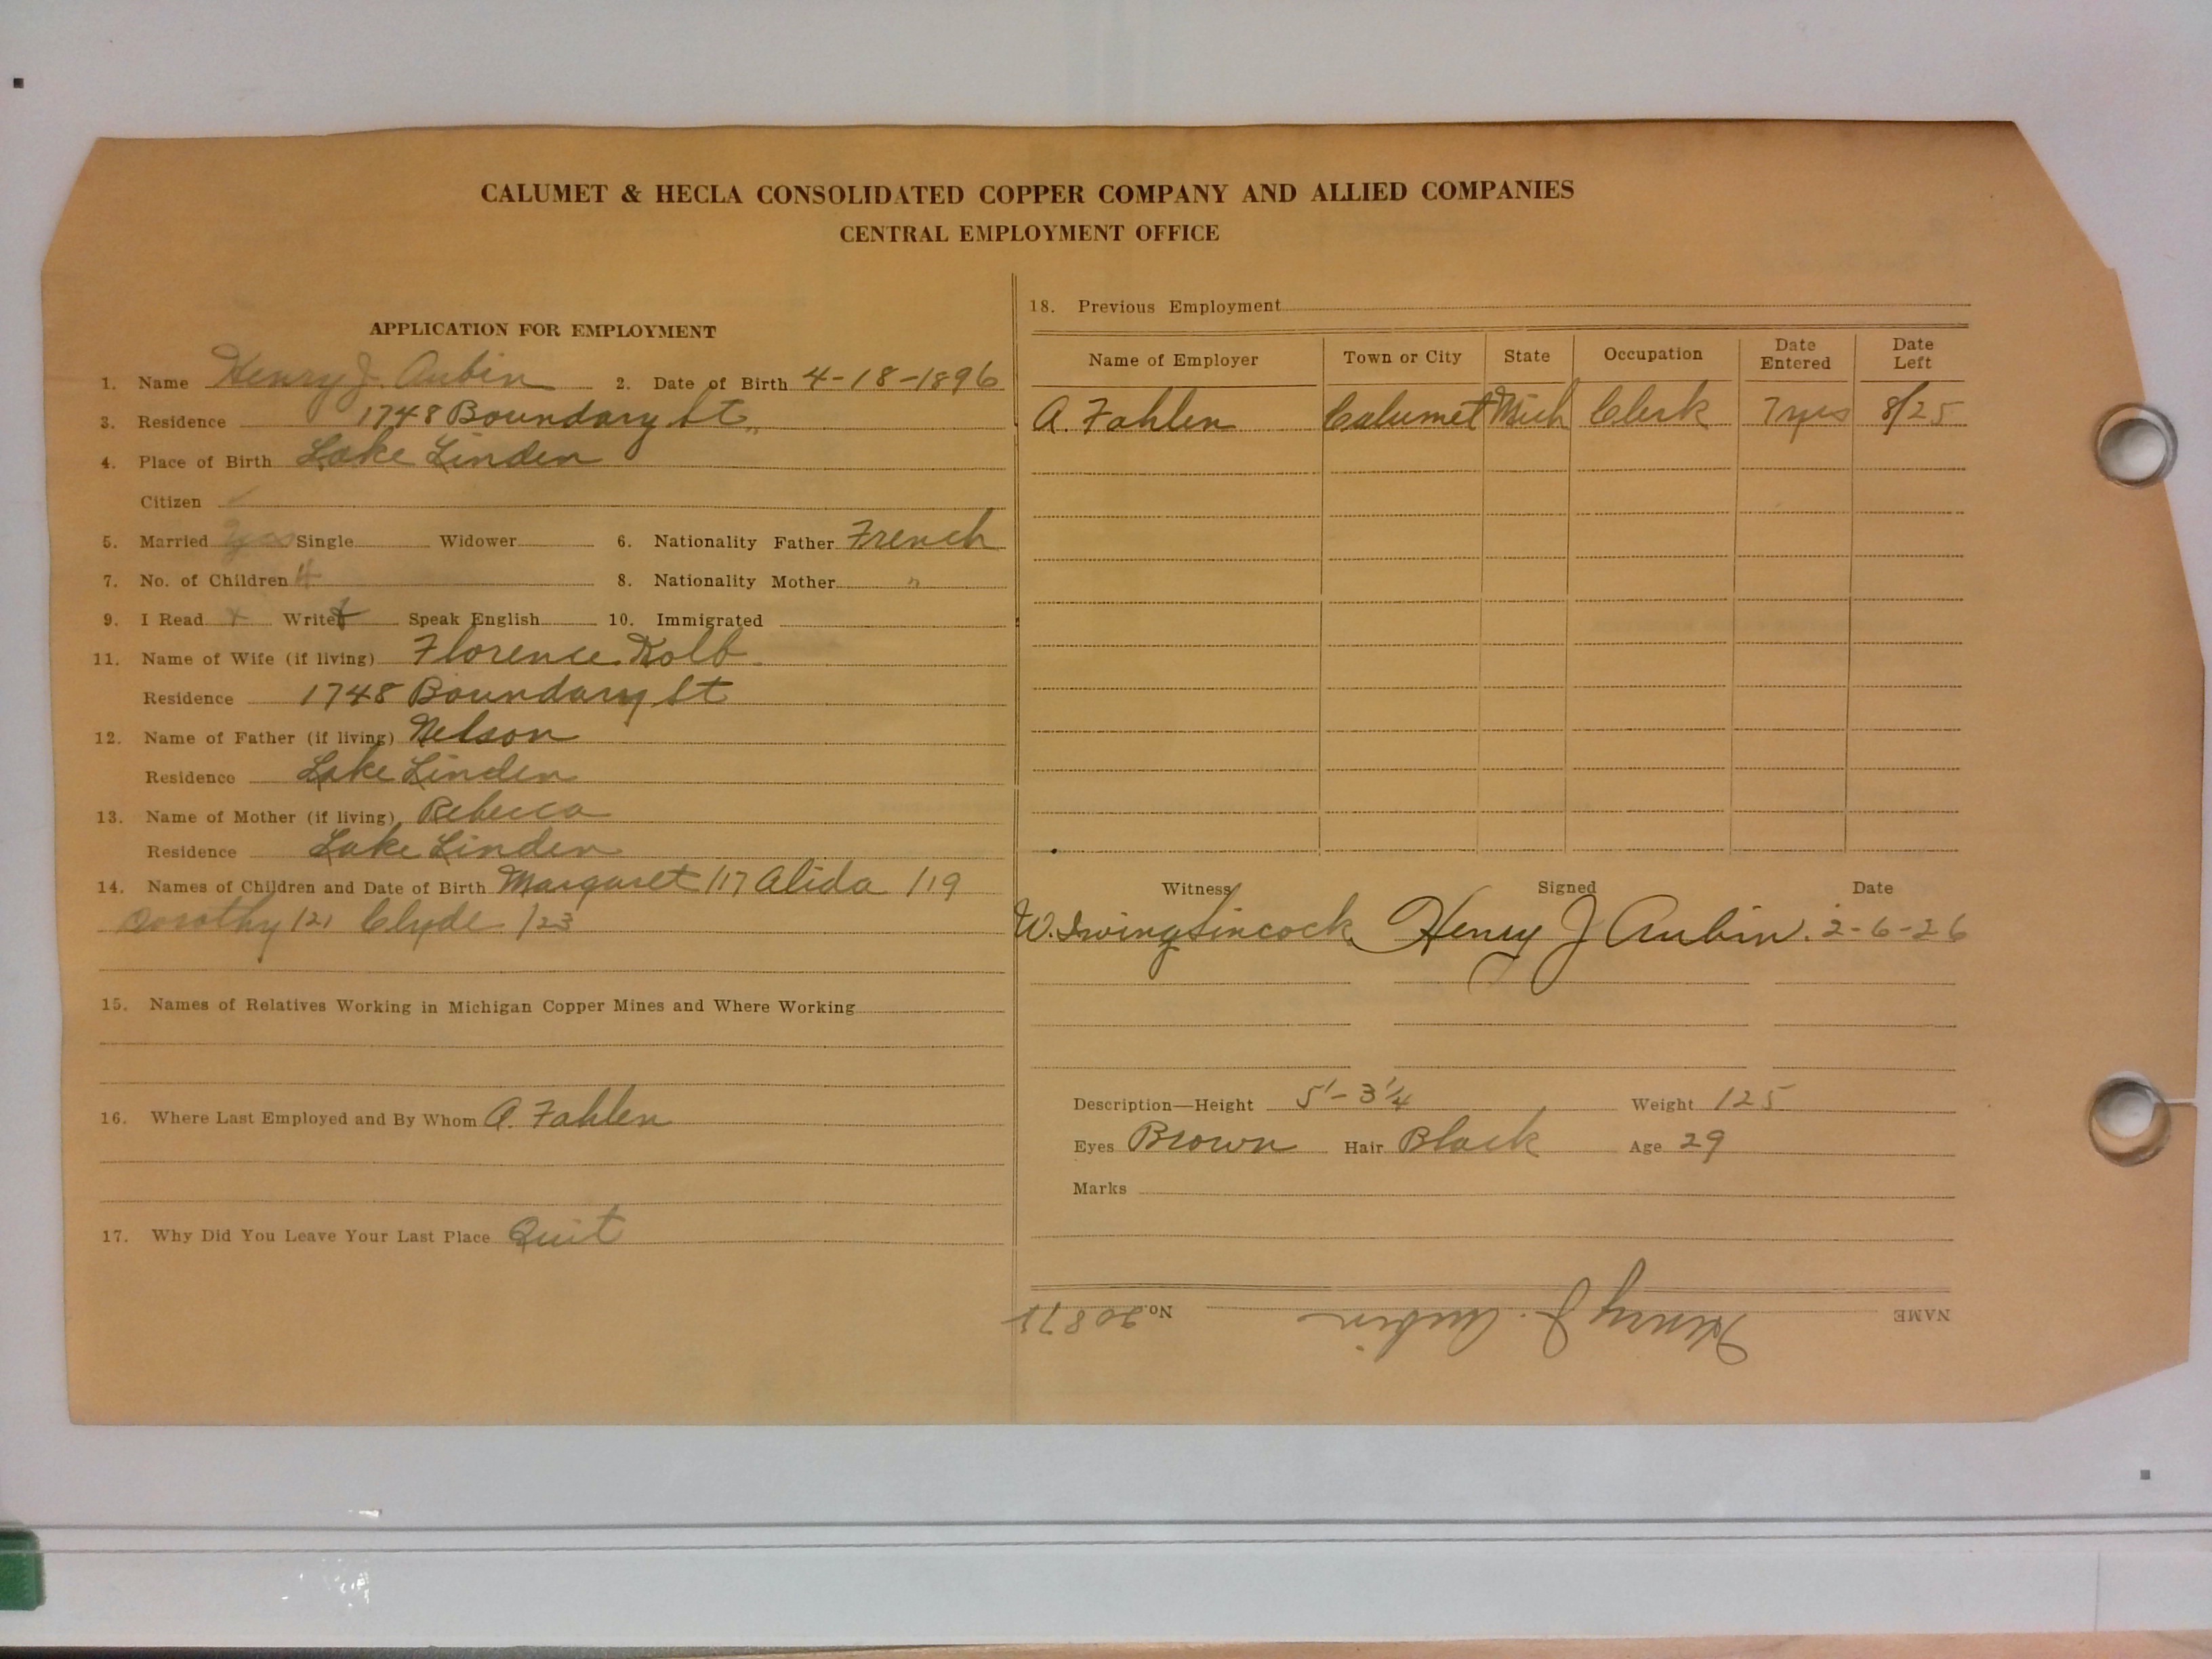 CALUMET & HECLA CONSOLIDATED COPPER COMPANY AND ALLIED COMPANIES
CENTRAL EMPLOYMENT OFFICE
APPLICATION FOR EMPLOYMENT
1. Name Henry J. Aubin 2. Date of Birth 4-18-1896
3. Residence 1748 Boundary St.
4. Place of Birth Lake Linden
Citizen ✓
5. Married yes Single Widower 6. Nationality Father French
7. No. of Children 4 8. Nationality Mother "
9. I Read x Write x Speak English 10. Immigrated
11. Name of Wife (if living) Florence Kolb
Residence 1748 Boundary St
12. Name of Father (if living) Nelson
Residence Lake Linden
13. Name of Mother (if living) Rebecca
Residence Lake Linden
14. Names of Children and Date of Birth Margaret /17 Alida /19
Dorothy /21 Clyde /23
15. Names of Relatives Working in Michigan Copper Mines and Where Working
16. Where Last Employed and By Whom A. Fahlen
17. Why Did You Leave Your Last Place Quit
18. Previous Employment
Name of Employer Town or City State Occupation Date Entered Date Left
A. Fahlen Calumet Mich Clerk 7 yrs 8/25
Witness Signed Date
W. Irving Sincock Henry J Aubin. 2-6-26
Description—Height 5'-3 1/4 Weight 125
Eyes Brown Hair Black Age 29
Marks
NAME Henry J. Aubin No. 20875